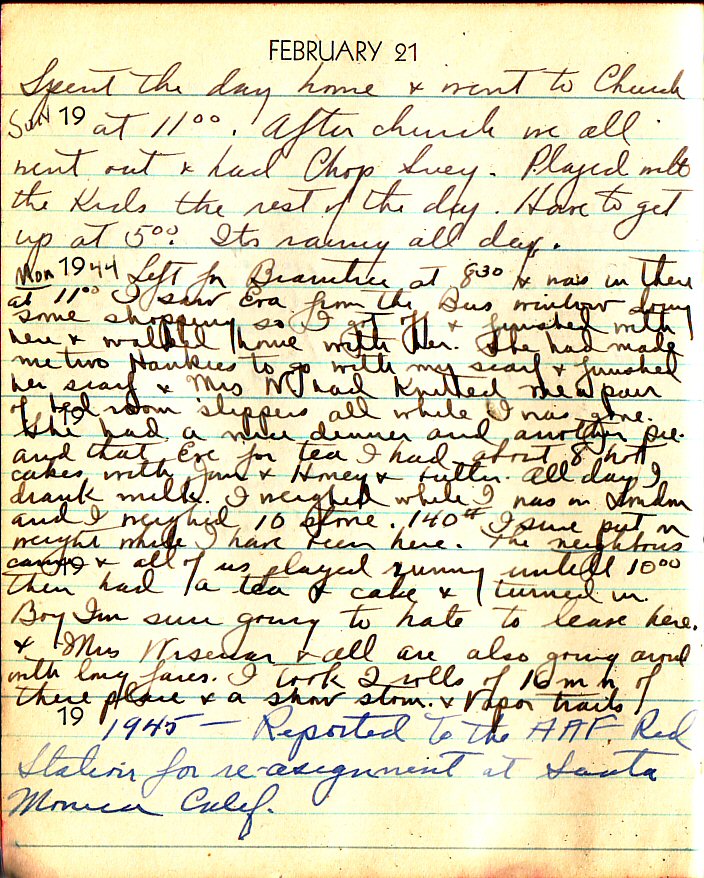 FEBRUARY 21
Spent the day home & went to Church
Sun 19 at 11°°. After church we all
went out & had Chop Suey. Played with
the Kids the rest of the day. Have to get
up at 5°°. Its rainy all day.
Mon 1944 Left for Braintree at 8³⁰ & was in there
at 11°° I saw Eva from the Bus window doing
some shopping so I got off & finished with
here & walked home with her. She had made
me two Hankies to go with my scarf & finished
her scarf & Mrs W had Knitted me a pair
of bed room slippers all while I was gone.
19
She had a nice dinner and another pie.
and that Eve for tea I had about 8 hot
cakes with Jam & Honey & butter. All day I
drank milk. I weighed while I was in London
and I weighed 10 stone. 140# I sure put on
weight while I have been here. The neighbours
19
came & all of us played rummy untill 10°°
then had a tea & cake & turned in.
Boy Im sure going to hate to leave here.
& Mrs Wiseman & all are also going around
with long faces. I took 2 rolls of 16 m m of
there place & a snow storm. & Vapor trails
19 1945 — Reported to the AAF. Red
Station for re-assignment at Santa
Monica Calif.